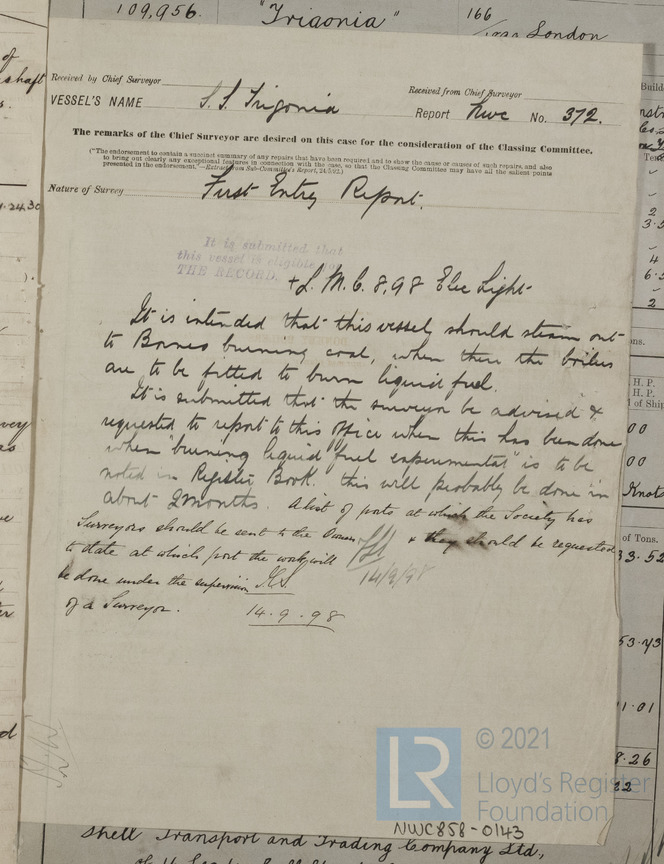 109,956.
"Trigonia"
166
London
Received by Chief Surveyor
Received from Chief Surveyor
VESSEL'S NAME S.S Trigonia
Report Nwc No. 372.
The remarks of the Chief Surveyor are desired on this case for the consideration of the Classing Committee.
("The endorsement to contain a succinct summary of any repairs that have been required and to show the cause or causes of such repairs, and also
to bring out clearly any exceptional features in connection with the case, so that the Classing Committee may have all the salient points
presented in the endorsement."—Extract from Sub-Committee's Report, 24/5/92.)
Nature of Survey First Entry Report.
It is submitted that
this vessel is eligible for
THE RECORD.
+ L. M. C. 8,98 Elec Light
It is intended that this vessel should steam out
to Borneo burning coal, when there the boilers
are to be fitted to burn liquid fuel.
It is submitted that the surveyor be advised &
requested to report to this office when this has been done
when "burning liquid fuel experimental" is to be
noted in Register Book. this will probably be done in
about 2 months. A list of ports at which the Society has
Surveyors should be sent to the Owners & they should be requested
to state at which port the work will
be done under the supervision
of a Surveyor.
14/9/98
14.9.98
© 2021
LR
Lloyd's Register
Foundation
NWC858-0143
Shell Transport and Trading Company Ltd,
of
shaft
24.30
H. P.
H. P.
of Ship
00
00
Knot
of Tons.
33.52
53.43
01
8.26
22